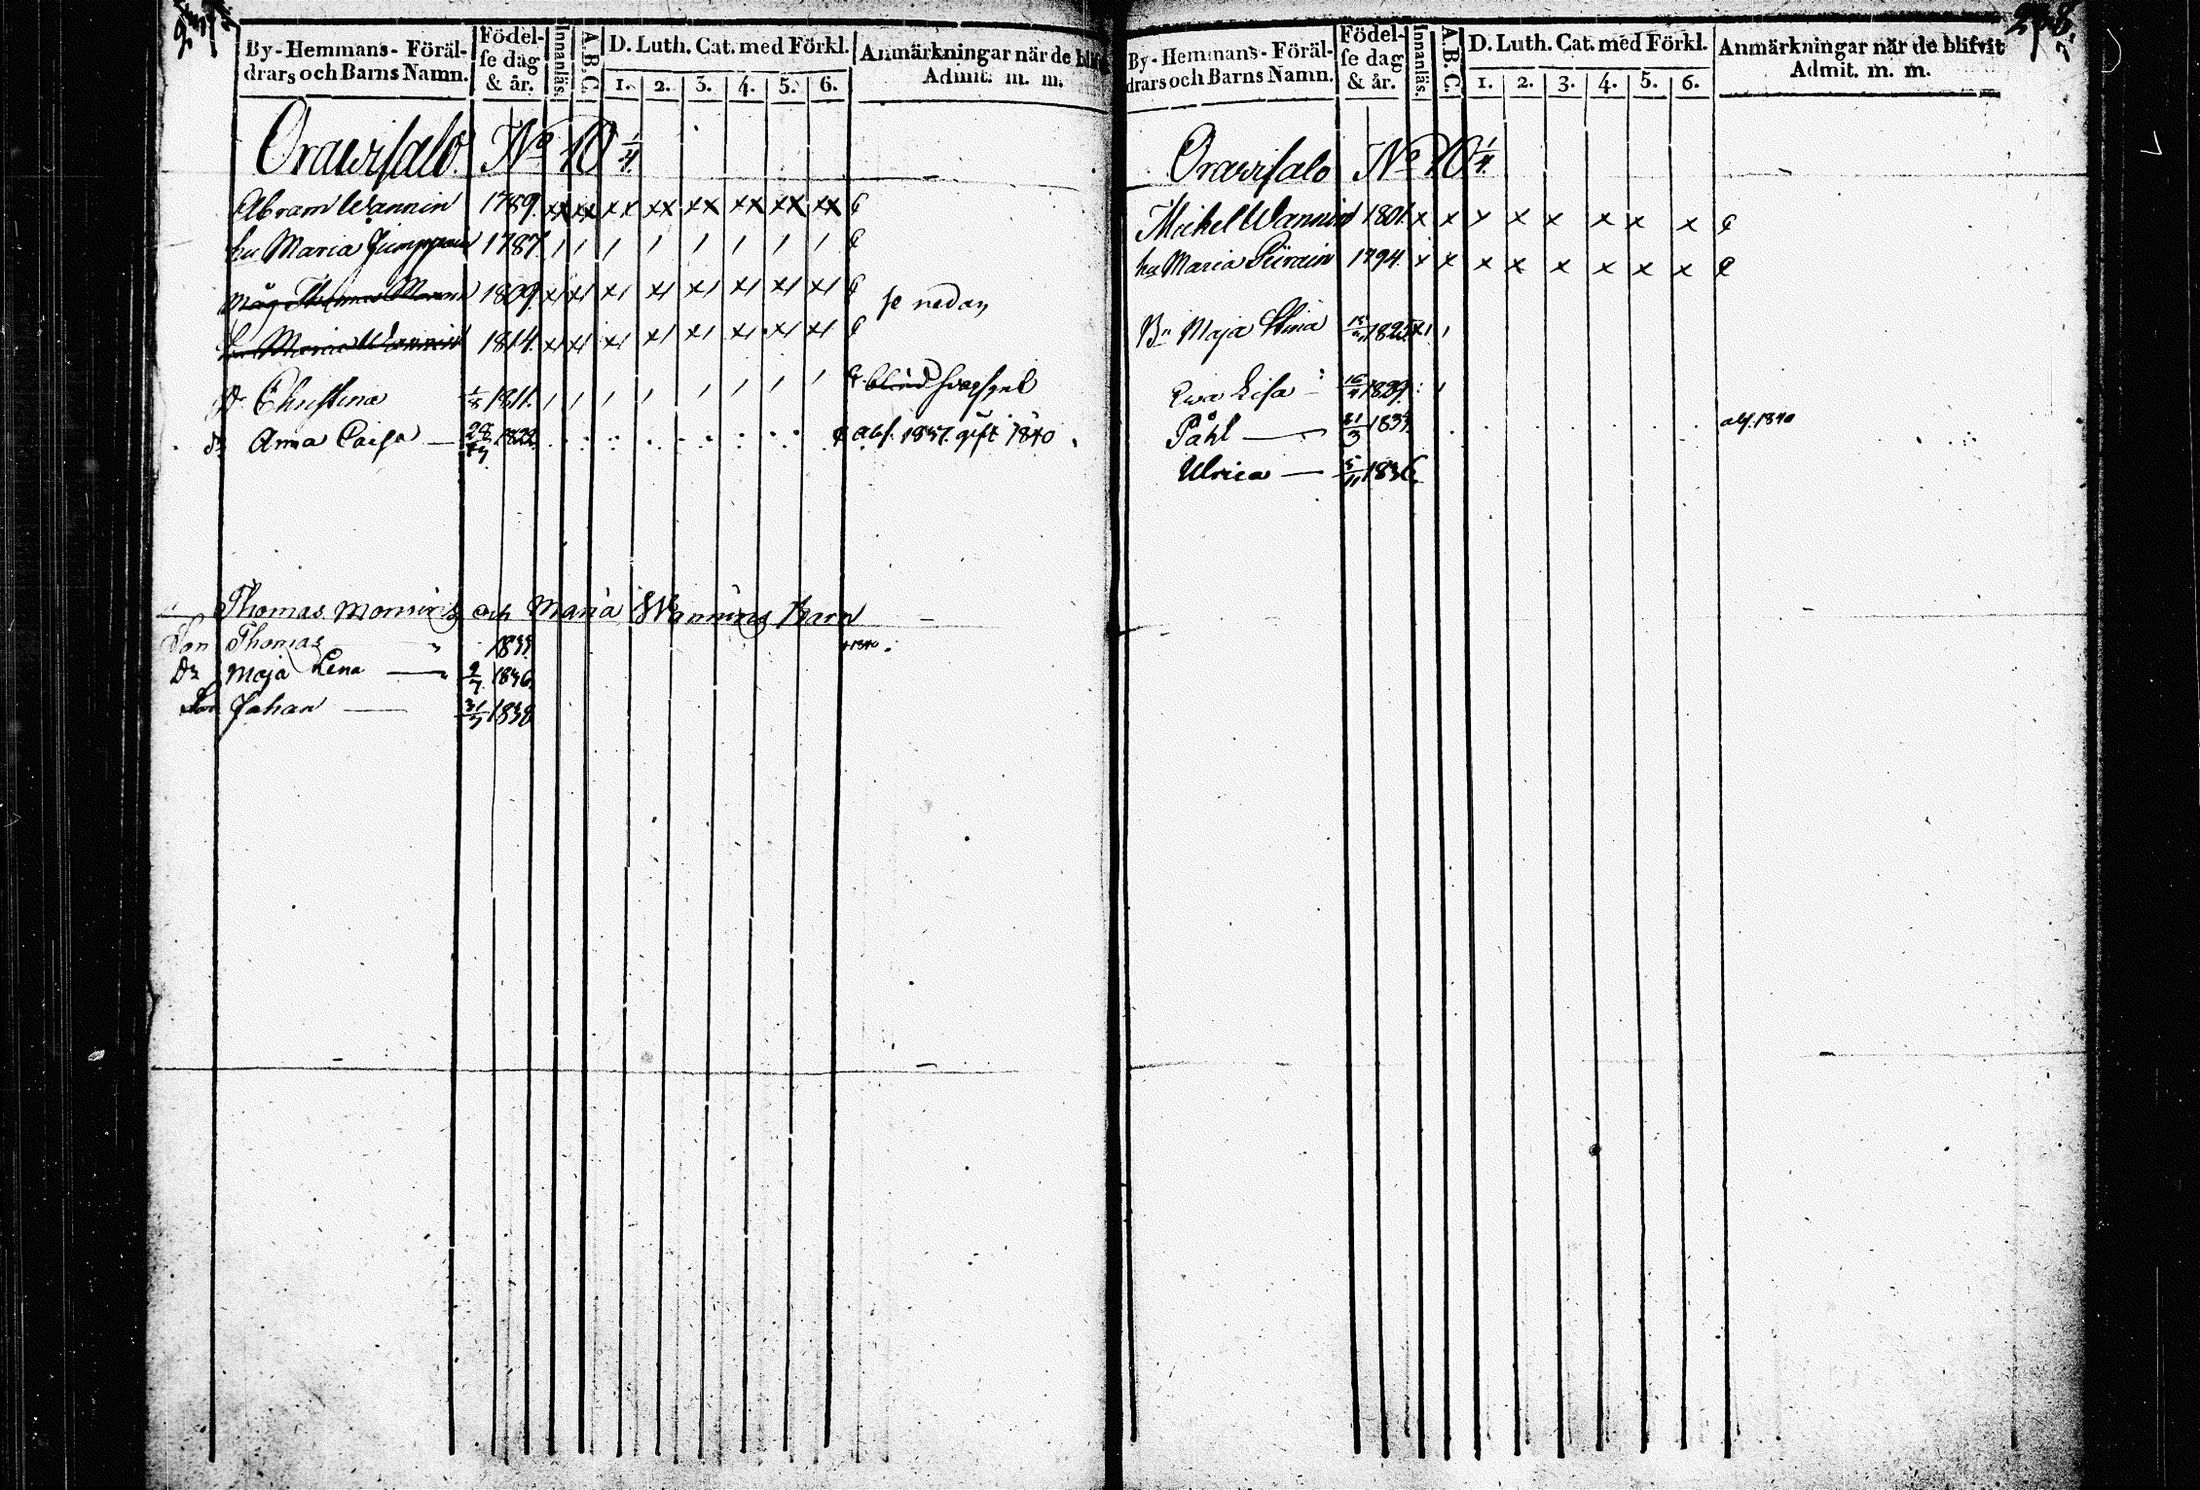 By-Hemmans-Föräl-
drars och Barns Namn.
Födel-
se dag
& år.
Innanläs.
A.B.C.
D. Luth. Cat. med Förkl.
1. 2. 3. 4. 5. 6.
Anmärkningar när de
Admit. m. m.
Orawisalo. No 10 1/4
Abram Wannin 1789. xx xx xx xx xx xx xx xx
hu Maria 1787.
måg Thomas 1809. se nedan
hu Maria Wannin 1814.
dr Christina 1/8 1811. blind svagsynt
dr Anna Caisa — 28/ 1822. abs. 1837. gift 1840
Thomas och Maria Wannins Barn
Son Thomas 1833. +1840.
dr Maja Lena — 2/7 1836.
Son Johan — 31/7 1838
238.
By-Hemmans-Föräl-
drars och Barns Namn.
Födel-
se dag
& år.
Innanläs.
A.B.C.
D. Luth. Cat. med Förkl.
1. 2. 3. 4. 5. 6.
Anmärkningar när de blifvit
Admit. m. m.
Orawisalo No 10 1/4.
Mickel Wannin 1801. x x x x x x x x
hu Maria 1794. x x x x x x x x
Bn Maja Stina 1825
Ewa Lisa 1829.
Påhl — abs. 1840
Ulrica — 5/11 1836.